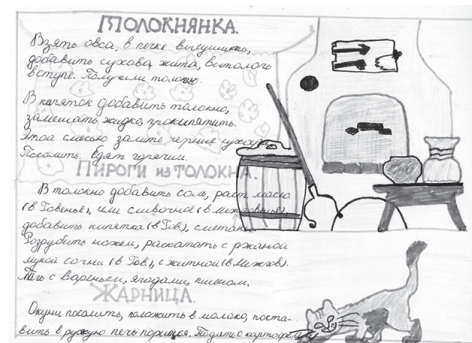 ТОЛОКНЯНКА.
Взять овса, в печке высушить,
добавить сухова жита, вытолочь
в ступе. Получили толокно.
В кипяток добавить толокно,
замешать жидко, прокипятить.
Этой смесью залить черние сухари.
Посолить. Едят горячим.
ПИРОГИ ИЗ ТОЛОКНА.
В толокно добавить соль, раст. масло
(в Говенье), или сливочное (в
добавить кипятка (в Гов), сметану.
Разрубить ножом, раскатать с ржаной
мукой сочни (в Гов), с житной (в
Печь с вареньем, ягодами, пшеном.
ЖАРНИЦА.
Окуни посолить, положить в молоко, поста-
вить в русскую печь париться. Подать с картофелем